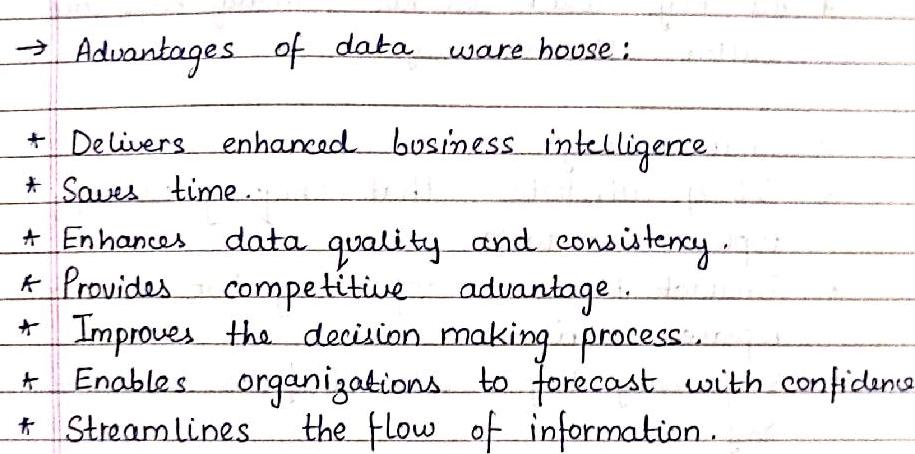 → Advantages of data ware house:
* Delivers enhanced business intelligence
* Saves time.
* Enhances data quality and consistency.
* Provides competitive advantage.
* Improves the decision making process.
* Enables organizations to forecast with confidence
* Streamlines the flow of information.